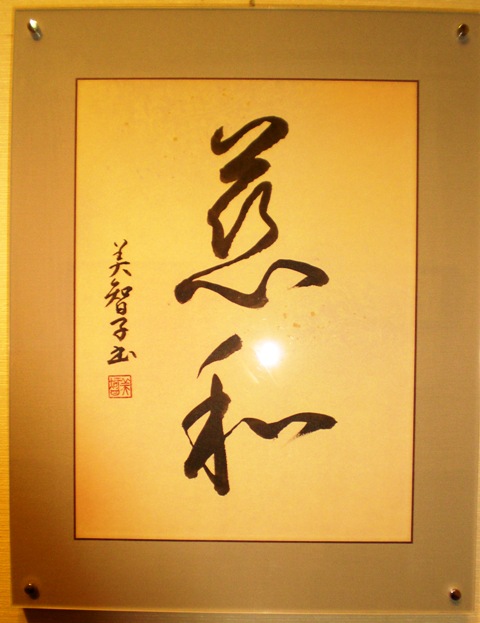 慈和
美智子書